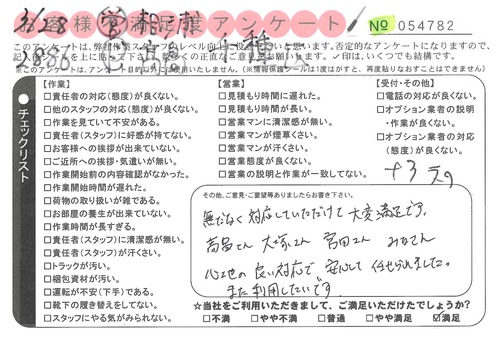 3/28 ㊢ 相模
お客様満足度アンケート
No 054782
2886
このアンケートは、弊社作業スタッフのレベル向上に役
※このアンケートは、
(※情報保護シールは1度はがすと、再度貼りなおすことはできません)
チェックリスト
【作業】
□責任者の対応(態度)が良くない。
□他のスタッフの対応(態度)が良くない。
□作業を見ていて不安がある。
□責任者(スタッフ)に好感が持てない。
□お客様への挨拶が出来ていない。
□ご近所への挨拶・気遣いが無い。
□作業開始前の内容確認がなかった。
□作業開始時間が遅れた。
□荷物の取り扱いが雑である。
□お部屋の養生が出来ていない。
□作業時間が長すぎる。
□責任者(スタッフ)に清潔感が無い。
□責任者(スタッフ)が汗くさい。
□トラックが汚い。
□梱包資材が汚い。
□運転が不安(下手)である。
□靴下の履き替えをしてない。
□スタッフにやる気がみられない。
【営業】
□見積もり時間に遅れた。
□見積もり時間が長い。
□営業マンに清潔感が無い。
□営業マンが煙草くさい。
□営業マンが汗くさい。
□営業態度が良くない。
□営業の説明と作業が一致してない。
【受付・その他】
□電話の対応が良くない。
□オプション業者の説明
・作業が良くない。
□オプション業者の対応
(態度)が良くない。
その他、ご意見・ご要望等ありましたらお書き下さい。
無だなく対応していただけて大変満足です。
高畠さん 大塚さん 宮田さん
心地の良い対応で安心して任せられました。
また利用したいです
☆当社をご利用いただきまして、ご満足いただけたでしょうか?
□不満 □やや不満 □普通 □やや満足 ☑満足